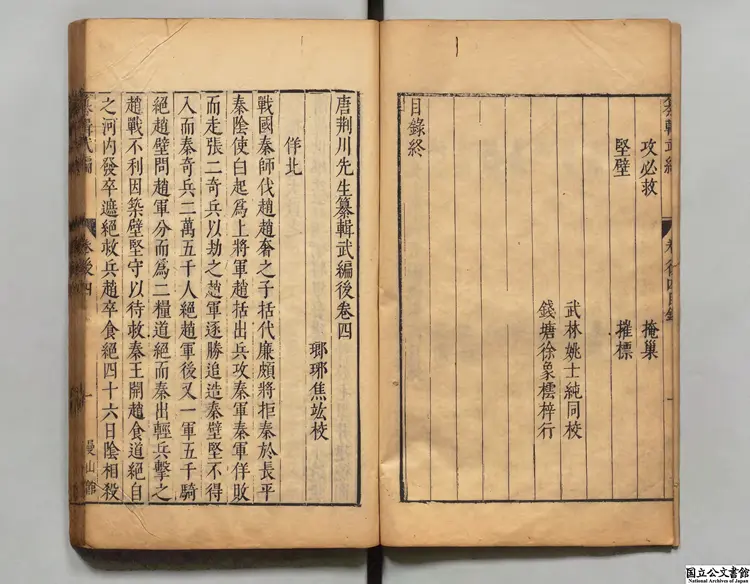 攻必救
掩巢
堅壁
摧標
武林姚士純同校
錢塘徐象橒梓行
目錄終
唐荊川先生纂輯武編後卷四
瑯琊焦竑校
佯北
戰國秦師伐趙趙奢之子括代廉頗將拒秦於長平
秦陰使白起爲上將軍趙括出兵攻秦軍秦軍佯敗
而走張二奇兵以劫之趙軍逐勝追造秦壁堅不得
入而秦奇兵二萬五千人絕趙軍後又一軍五千騎
絕趙壁間趙軍分而爲二糧道絕而秦出輕兵擊之
趙戰不利因築壁堅守以待救秦王聞趙食道絕自
之河內發卒遮絕救兵趙卒食絕四十六日陰相殺
曼山館
国立公文書館
National Archives of Japan